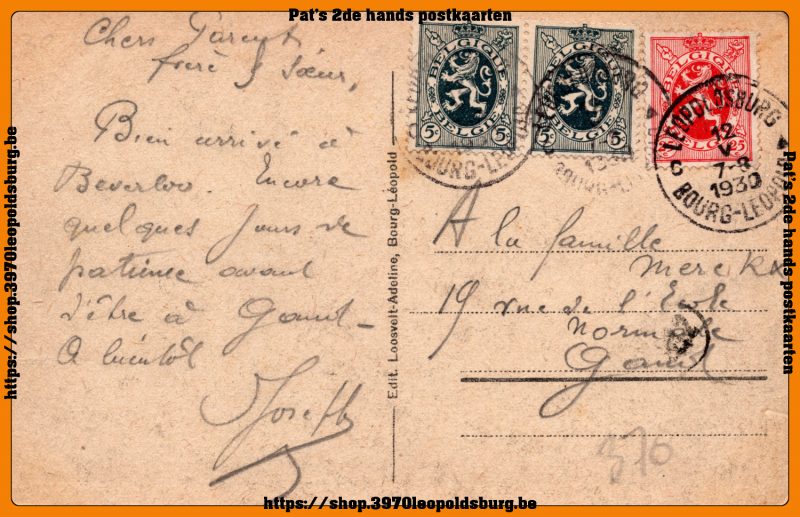 Pat's 2de hands postkaarten
Chers Parents
frère & Sœur,
Bien arrivé à
Beverloo. Encore
quelques jours de
patience avant
d'être à Gand -
A bientôt
Joseph
Edit. Loosvelt-Adeline, Bourg-Léopold
BELGIQUE
5c 5c
BELGIË
BELGIQUE
5c 5c
BELGIË
BELGIQUE
25
BELGIË
BOURG-LEOPOLD
LEOPOLDSBURG
12
V
7-8
1930
C
BOURG-LEOPOLD
A la famille
Merckx
19 rue de l'Ecole
Normale
Gand
370
https://shop.3970leopoldsburg.be
Pat's 2de hands postkaarten
https://shop.3970leopoldsburg.be